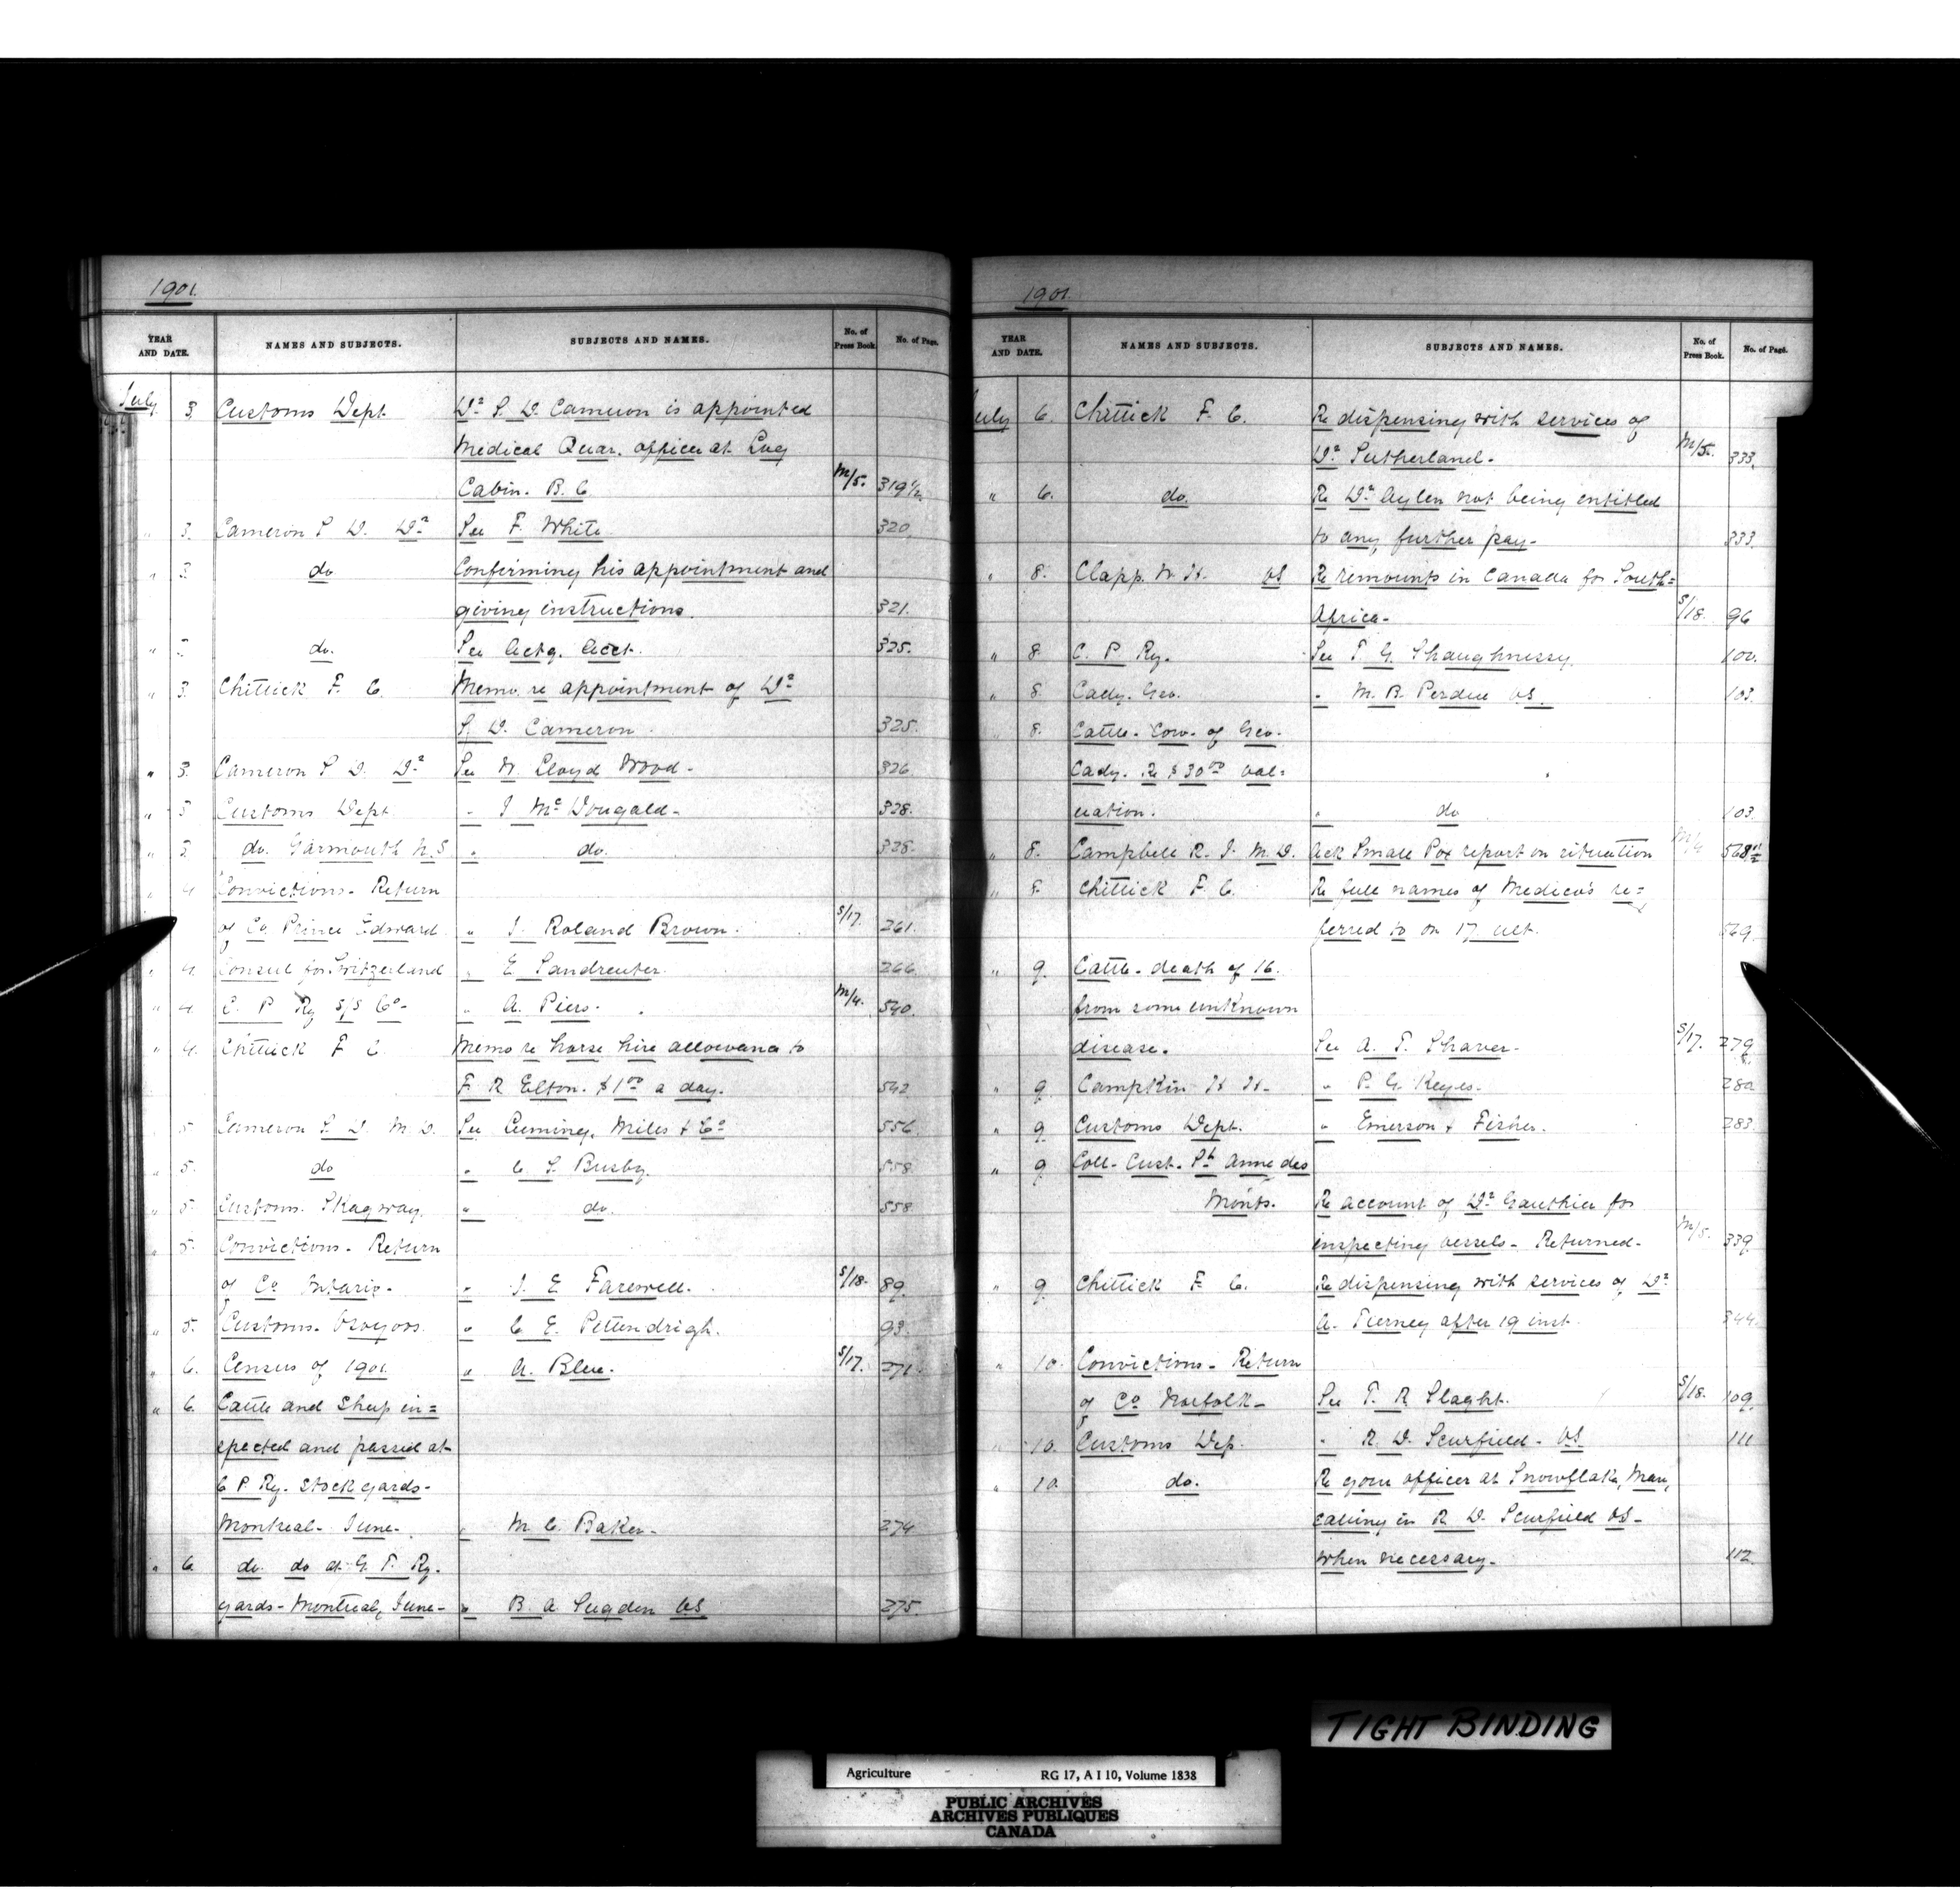 1901.
YEAR AND DATE. NAMES AND SUBJECTS. SUBJECTS AND NAMES. No. of Press Book. No. of Page.
July 3 Customs Dept Dr S. D. Cameron is appointed
Medical Quar. officer at Log
Cabin. B. C. M/5. 319½
" 3. Cameron S D. Dr See F. White 320.
" 3 do Confirming his appointment and
giving instructions. 321.
" do. See Actg. Acct. 325.
" 3. Chittick F. C. Memo. re appointment of Dr
S. D. Cameron. 325.
" 3. Cameron S D. Dr See N. Lloyd Wood - 326
" 3 Customs Dept. " J McDougald - 328.
" 3. do. Yarmouth N.S " do. 328.
" 4 Convictions - Return
of Co Prince Edward " J. Roland Brown. S/17. 261.
" 4. Consul for Switzerland " E Sandreuter. 266.
" 4. C. P Ry S/S Co - " A. Piers. M/4. 540.
" 4. Chittick F C. Memo re horse hire allowance to
F R Elton. $1.00 a day. 542
5. Cameron S. D. M. D. See Cuming, Miles & Co 556.
" 5. do " C. S. Busby. 558.
" 5. Customs. Skagway. " do. 558
" 5. Convictions - Return
of Co Ontario - " J. E Farewell. S/18. 89.
" 5. Customs - Osoyoos. " C. E. Pittendrigh. 93.
" 6. Census of 1901 " A. Blue. S/17. 271.
" 6. Cattle and Sheep in=
spected and passed at
C P. Ry. Stock yards -
Montreal - June - " M. C. Baker - 274
" 6. do. do at G. T. Ry.
yards - Montreal, June - " B. A. Sugden VS 275.
1901.
YEAR AND DATE. NAMES AND SUBJECTS. SUBJECTS AND NAMES. No. of Press Book. No. of Page.
July 6. Chittick F. C. Re dispensing with services of
Dr Sutherland - M/5. 333.
" 6. do. Re Dr Aylen not being entitled
to any further pay - 333.
" 8. Clapp. N. H. VS Re remounts in Canada for South=
Africa - S/18. 96
" 8 C. P Ry. See T. G. Shaughnessy. 100.
" 8. Cady. Geo. " M. B. Perdue VS. 103.
8. Cattle - Cow - of Geo.
Cady. Re $30.00 val=
uation. " do 103.
" 8. Campbell R. J. M. D. Ack Small Pox report on situation M/4 568½
" 8. Chittick F. C. Re full names of Medico's re=
ferred to on 17 ult. 569.
" 9. Cattle - death of 16.
from some unknown
disease. See A. T. Shaver - S/17. 279
" 9. Campkin H H - " P. G. Keyes. 280
" 9 Customs Dept. " Emerson & Fisher. 283.
" 9 Coll - Cust - Pt Anne des
Monts. Re account of Dr Gauthier for
inspecting vessels - Returned - M/5. 339.
" 9 Chittick F. C. Re dispensing with services of Dr
A. Tierney after 19 inst. 344.
" 10. Convictions - Return
of Co Norfolk - See T. R Slaght. S/18. 109.
" 10. Customs Dep. " R. D. Scurfield - VS 111
" 10. do. Re your officer at Snowflake, Man,
calling in R D. Scurfield VS -
when necessary. 112.
TIGHT BINDING
Agriculture RG 17, A I 10, Volume 1838
PUBLIC ARCHIVES
ARCHIVES PUBLIQUES
CANADA